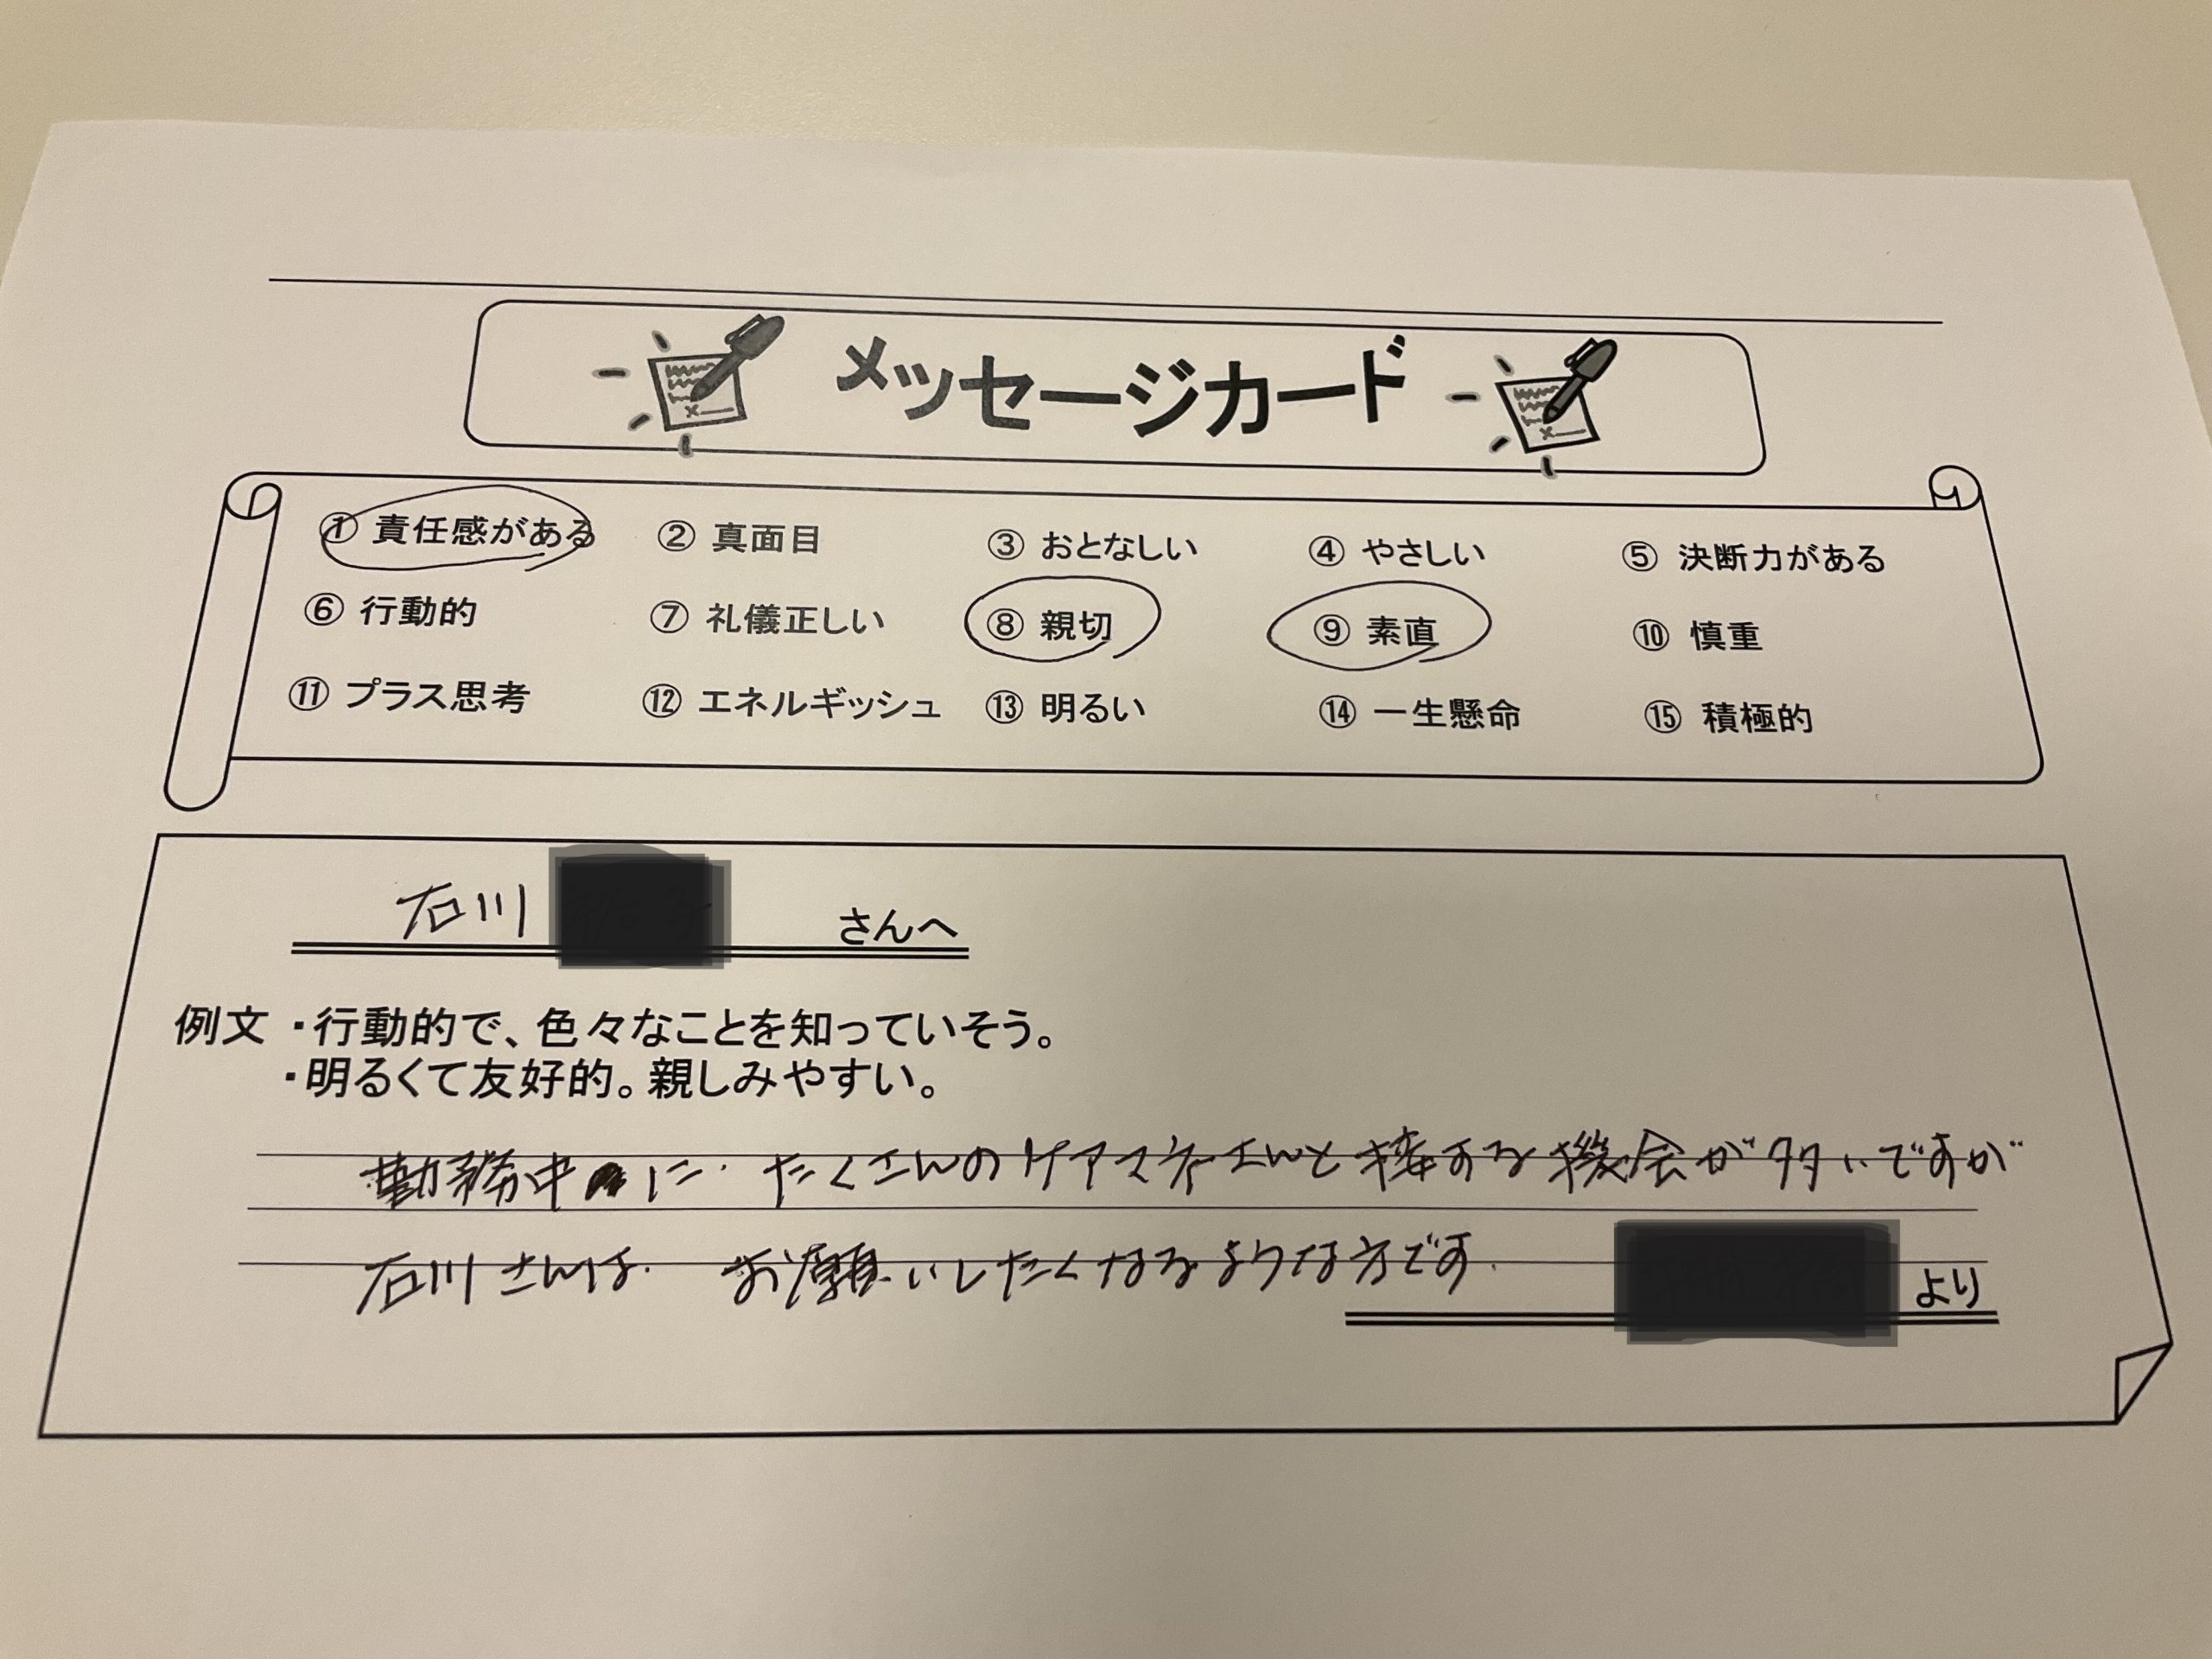 メッセージカード
① 責任感がある ② 真面目 ③ おとなしい ④ やさしい ⑤ 決断力がある
⑥ 行動的 ⑦ 礼儀正しい ⑧ 親切 ⑨ 素直 ⑩ 慎重
⑪ プラス思考 ⑫ エネルギッシュ ⑬ 明るい ⑭ 一生懸命 ⑮ 積極的
石川 さんへ
例文 ・行動的で、色々なことを知っていそう。
・明るくて友好的。親しみやすい。
勤務中に、たくさんのケアマネさんと接する機会が多いですが
石川さんは、お願いしたくなるような方です。
より